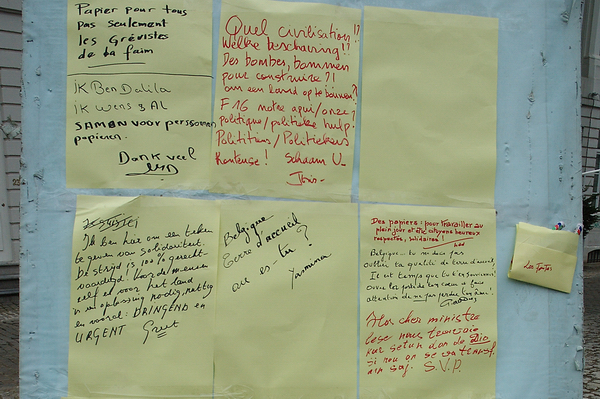 Papier pour tous
pas seulement
les Grévistes
de la faim
IK Ben Dalila
IK wens 3 Al
SAMEN voor personnen
papieren.
Dank veel
Quel civilisation!?
Welke beschaving!?
Des bombes, bommen
pour construire?!
om een land op te bouwen?!
F16 notre appui/onze
politique/politieke hulp!
Polititiens/Politiekers
Honteuse! Schaam U
Ik ben hier om een teken
te geven van solidariteit.
strijd is 100% gerecht-
vaardigd!
zelf et voor het land
is een oplossing nodig, nuttig
en vooral: DRINGEND en
URGENT
Greet
Belgique
Terre d'accueil
où es-tu?
Yasmina
Des papiers: pour travailler au
plein jour et être citoyens heureux
respectés, solidaires!
Belgique - tu m'as fait
oublier ta qualité de terre d'accueil,
Il est temps que tu t'en souviennes!
Ouvre les portes de ton cœur et fais
attention de ne pas perdre ton âme!
Alor cher ministre
setun don de Dio
si nou on se
S.V.P.